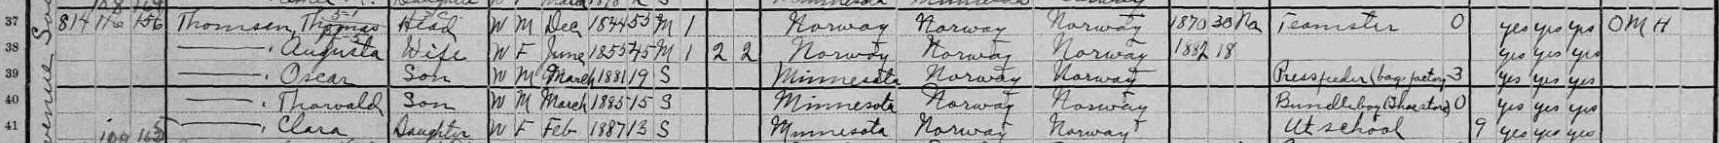 37 814 116 156 Thomsen, Thomas Head W M Dec 1844 55 M 1 Norway Norway Norway 1870 30 Na Teamster 0 yes yes yes O M H
38 ———, Augusta Wife W F June 1855 45 M 1 2 2 Norway Norway Norway 1882 18 yes yes yes
39 ———, Oscar Son W M March 1881 19 S Minnesota Norway Norway Pressfeeder (bag factory 3 yes yes yes
40 ———, Thorwald Son W M March 1885 15 S Minnesota Norway Norway Bundleboy (Shoe store) 0 yes yes yes
41 ———, Clara Daughter W F Feb 1887 13 S Minnesota Norway Norway At school 9 yes yes yes